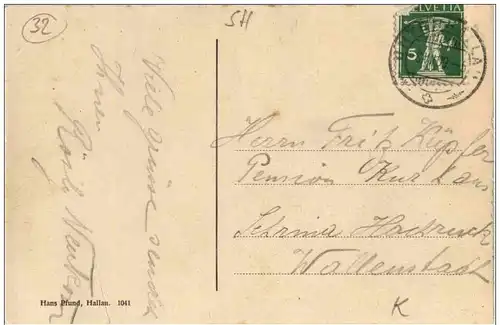 32
SH
HELVETIA
5
Viele Grüsse sendet
Ihnen
Rösli
Herrn Fritz Küpfer
Pension Kurhaus
Wallenstadt
K
Hans Pfund, Hallau. 1041